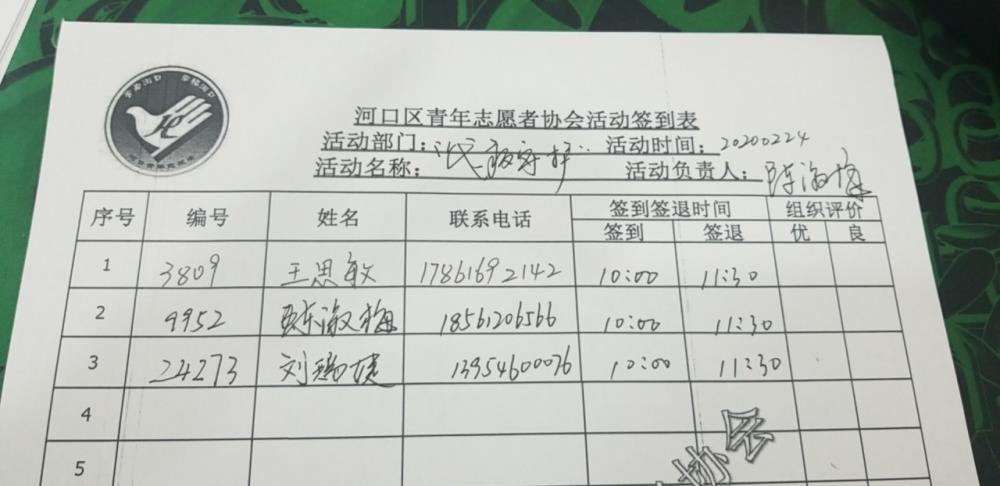 河口区青年志愿者协会活动签到表
活动部门： 活动时间：20200224
活动名称： 活动负责人：陈淑梅
序号 编号 姓名 联系电话 签到签退时间 组织评价
签到 签退 优 良
1 3809 王思敏 17861692142 10:00 11:30
2 9952 陈淑梅 18561206566 10:00 11:30
3 24273 刘瑞捷 13954600076 10:00 11:30
4
5
协会